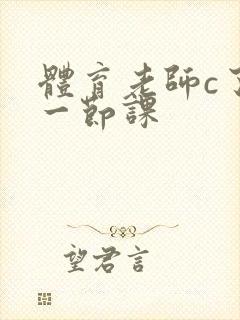 體育老師c了
一節課
望君言